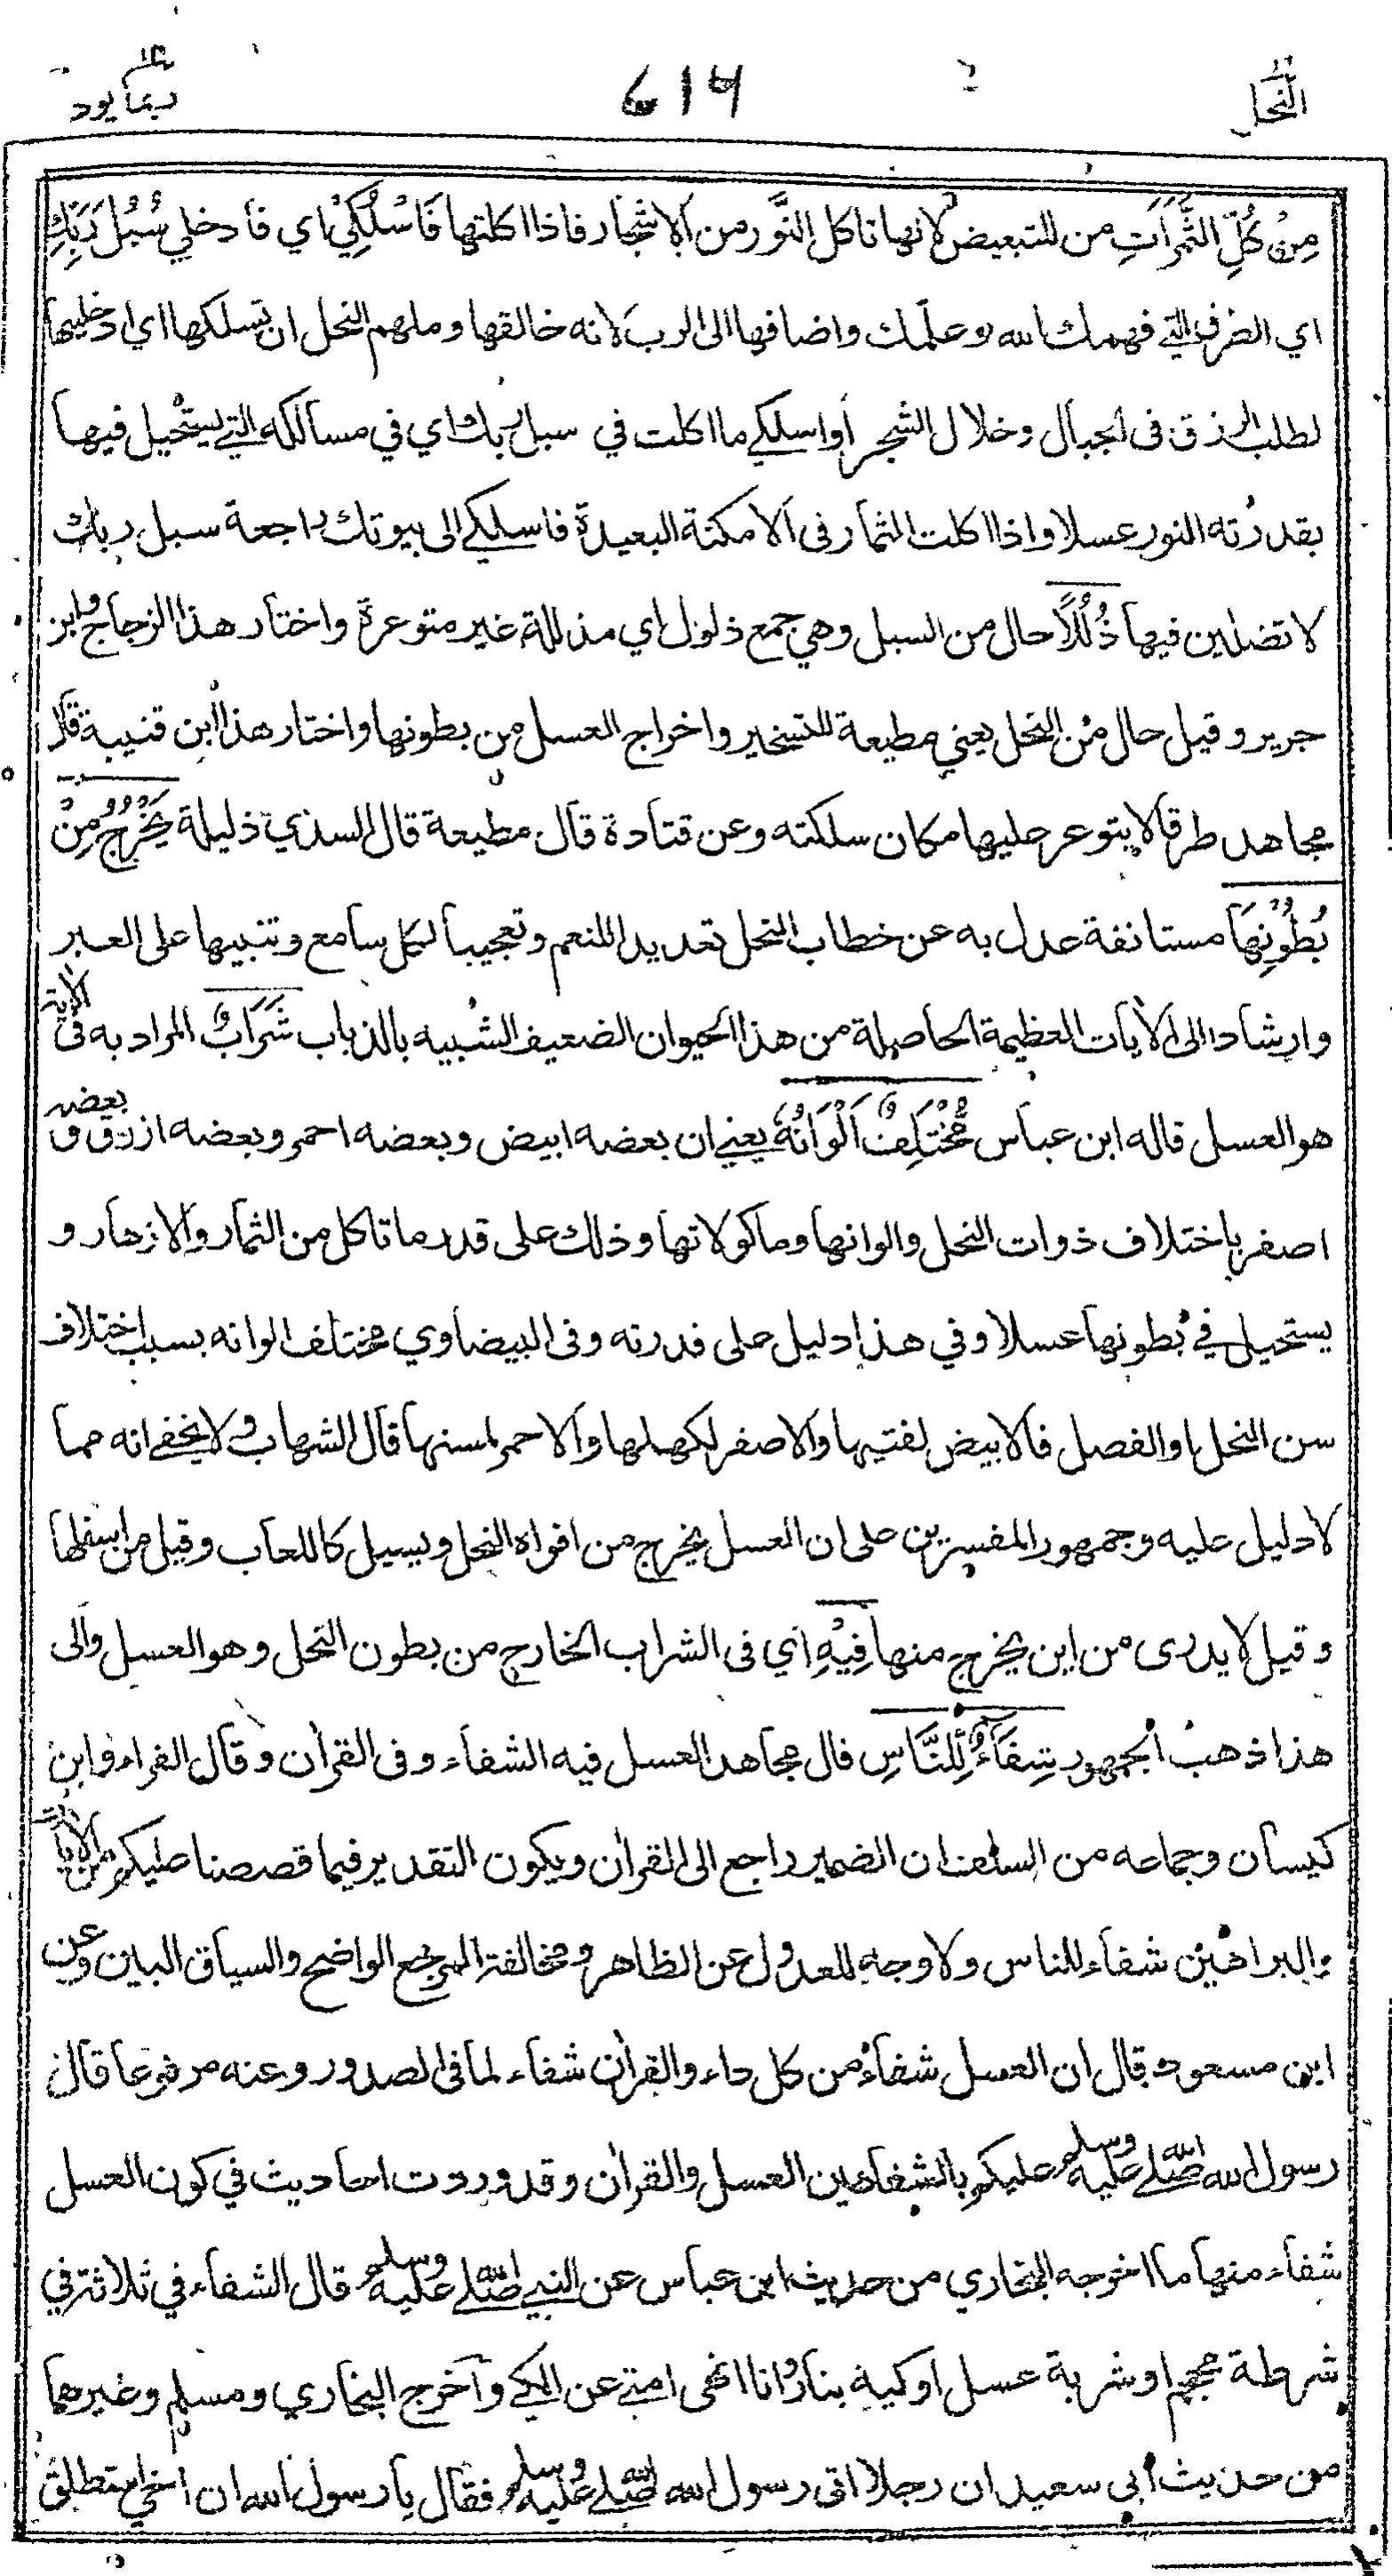 النحل ٦١٧ ربما ١٤
مِنْ كُلِّ الثَّمَرَاتِ من للتبعيض لانها تاكل النَّور من الاشجار فاذا اكلتها فَاسْلُكِيْ اي فادخلي سُبُلَ رَبِّكِ
اي الطرق التي فهمك الله وعلّمك واضافها الى الرب لانه خالقها وملهم النحل ان تسلكها اي ادخليها
لطلب الرزق فى الجبال وخلال الشجر أو اسلكي ما اكلت في سبل ربك اي في مسالكه التي يستحيل فيها
بقدرته النور عسلا واذا اكلت الثمار فى الامكنة البعيدة فاسلكي الى بيوتك راجعة سبل ربك
لا تضلين فيها ذُلُلًا حال من السبل وهي جمع ذلول اي مذللة غير متوعرة واختار هذا الزجاج وابن
جرير وقيل حال من النحل يعني مطيعة للتسخير واخراج العسل من بطونها واختار هذا ابن قتيبة قال
مجاهد طرقا لا يتوعر عليها مكان سلكته وعن قتادة قال مطيعة قال السدي ذليلة يَخْرُجُ مِنْ
بُطُوْنِهَا مستانفة عدل به عن خطاب النحل تعديدا للنعم وتعجيبا لكل سامع وتنبيها على العبر
وارشادا الى الأيات العظيمة الحاصلة من هذا الحيوان الضعيف الشبيه بالذباب شَرَابٌ المراد به فى الأية
هو العسل قاله ابن عباس مُّخْتَلِفٌ اَلْوَانُهٗ يعني ان بعضه ابيض وبعضه احمر وبعضه ازرق وبعضه
اصفر باختلاف ذوات النحل والوانها وماكولاتها وذلك على قدر ما تاكل من الثمار والازهار و
يستحيل في بطونها عسلا وفي هذا دليل على قدرته وفى البيضاوي مختلف الوانه بسبب اختلاف
سن النحل او الفصل فالابيض لفتيها والاصفر لكهلها والاحمر لمسنها قال الشهاب ولا يخفى انه مما
لا دليل عليه وجمهور المفسرين على ان العسل يخرج من افواه النحل ويسيل كاللعاب وقيل من اسفلها
وقيل لا يدرى من اين يخرج منها فِيْهِ اي فى الشراب الخارج من بطون النحل وهو العسل والى
هذا ذهب الجمهور شِفَآءٌ لِّلنَّاسِ قال مجاهد العسل فيه الشفاء وفى القرأن وقال الفراء وابن
كيسان وجماعه من السلف ان الضمير راجع الى القرأن ويكون التقدير فيما قصصنا عليكم من الأيات
والبراهين شفاء للناس ولا وجه للعدول عن الظاهر ومخالفة المرجع الواضح والسياق البين وعن
ابن مسعود قال ان العسل شفاء من كل داء والقرأن شفاء لما فى الصدور وعنه مرفوعا قال
رسول الله صلى الله عليه وسلم عليكم بالشفاءين العسل والقرأن وقد وردت احاديث في كون العسل
شفاء منها ما اخرجه البخاري من حديث ابن عباس عن النبي صلى الله عليه وسلم قال الشفاء في ثلاثة في
شرطة محجم او شربة عسل او كية بنار وانا انهى امتي عن الكي وأخرج البخاري ومسلم وغيرهما
من حديث أبي سعيد ان رجلا اتى رسول الله صلى الله عليه وسلم فقال يا رسول الله ان اخي استطلق